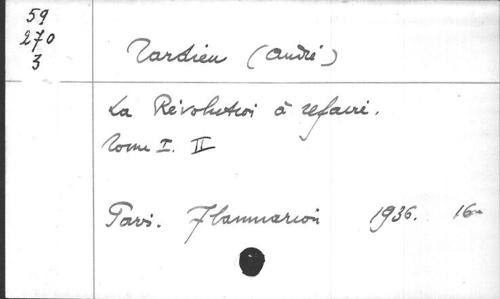 59
270
3
Tardieu (André)
La Révolution à refaire.
Tome I. II
Paris. Flammarion 1936. 16°